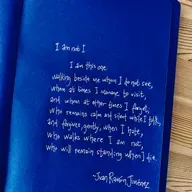 I am not I
I am this one
walking beside me whom I do not see,
whom at times I manage to visit,
and whom at other times I forget;
who remains calm and silent while I talk,
and forgives, gently, when I hate,
who walks where I am not,
who will remain standing when I die.
-Juan Ramón Jiménez